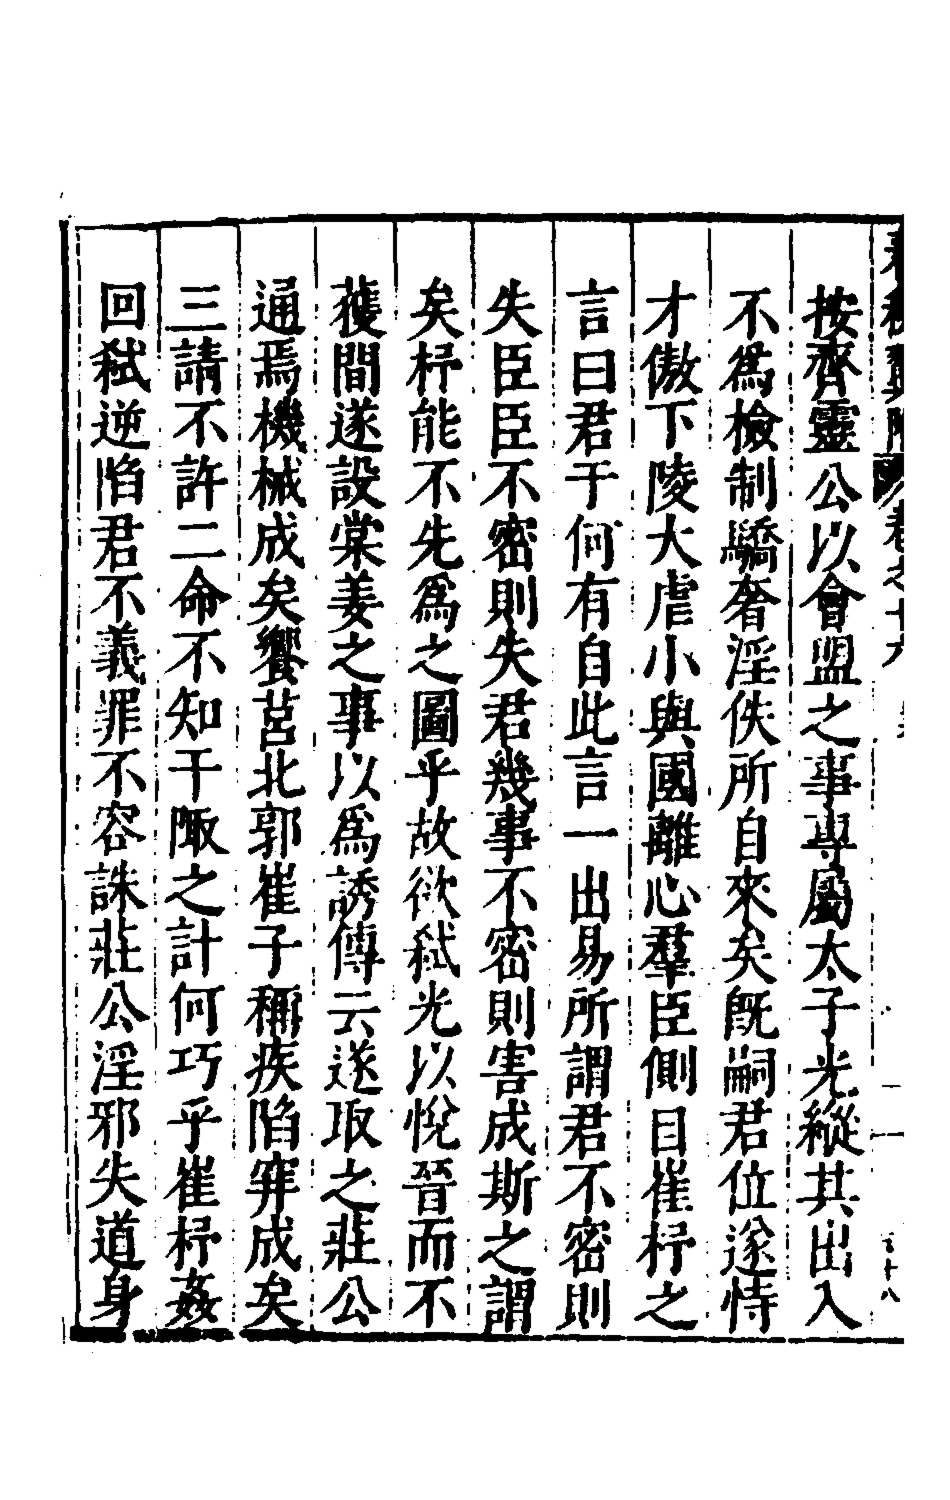 按齊靈公以會盟之事專屬太子光縱其出入
不爲檢制驕奢淫佚所自來矣旣嗣君位遂恃
才傲下陵大虐小與國離心羣臣側目崔杼之
言曰君于何有自此言一出易所謂君不密則
失臣臣不密則失君幾事不密則害成斯之謂
矣杼能不先爲之圖乎故欲弑光以悅晉而不
獲間遂設棠姜之事以爲誘傳云遂取之莊公
通焉機械成矣饗莒北郭崔子稱疾陷穽成矣
三請不許二命不知干陬之計何巧乎崔杼姦
回弑逆陷君不義罪不容誅莊公淫邪失道身